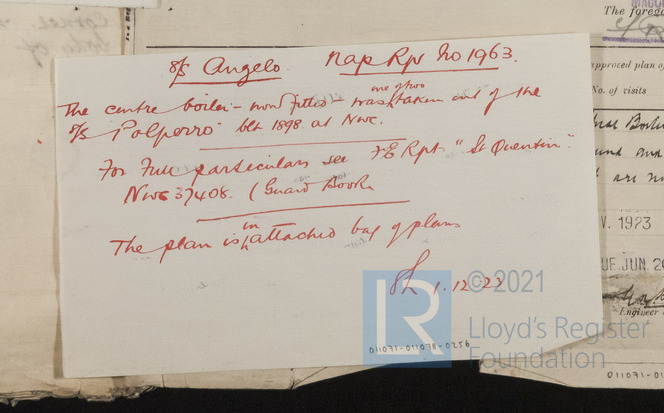 S/S Angelo. Nap Rpt No 1963.
one of two
The centre boiler - now fitted - was taken out of the
S/S "Polperro" blt 1898 at Nwc.
For Full particulars see F.E Rpt "St Quentin"
Nwc 37408. (Guard Book
in
The plan is attached bag of plans
1.12.23
© 2021
LR
Lloyd's Register
Foundation
011071-011078-0256
The forego
approved plan of
No. of visits
und and
V. 1923
UE.JUN. 20
Engineer
011071-01